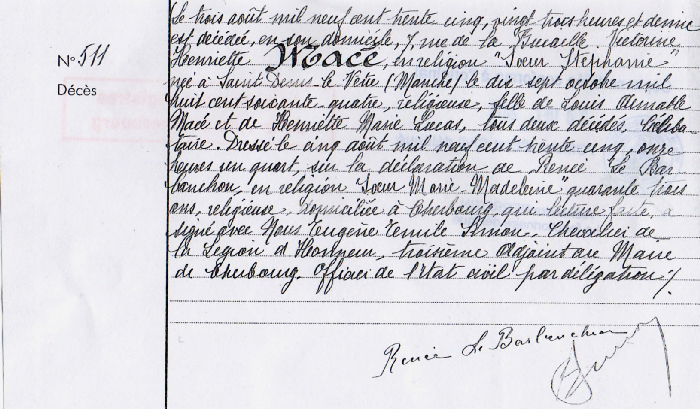 Le trois août mil neuf cent trente cinq, vingt trois heures et demie
est décédée, en son domicile, 7, rue de la Bucaille Victorine
N° 511
Henriette Macé, en religion "Sœur Stéphanie"
née à Saint Denis-le Vêtu (Manche) le dix sept octobre mil
Décès
huit cent soixante quatre, religieuse, fille de Louis Aimable
Macé et de Henriette Marie Lucas, tous deux décédés. Céliba-
taire. Dressé le cinq août mil neuf cent trente cinq, onze
heures un quart, sur la déclaration de Renée Le Bar-
banchon, en religion "Sœur Marie-Madeleine" quarante trois
ans, religieuse, domiciliée à Cherbourg, qui lecture faite, a
signé avec Nous Eugène Emile Simon. Chevalier de
la Légion d'Honneur, troisième adjoint au Maire
de Cherbourg. Officier de l'Etat civil par délégation ./.
Renée Le Barbanchon